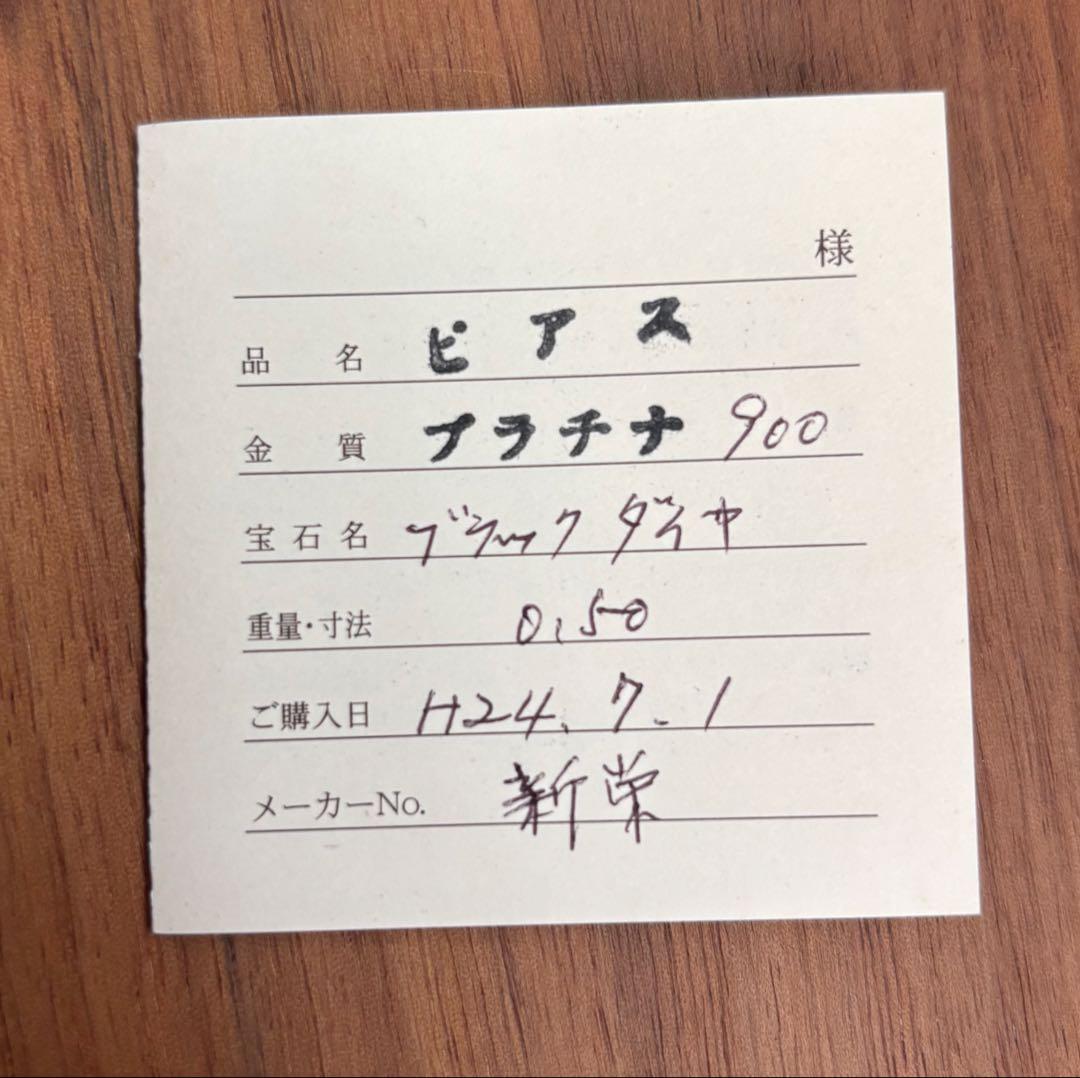 様
品名 ピアス
金質 プラチナ 900
宝石名 ブラックダイヤ
重量・寸法 0.50
ご購入日 H24.7.1
メーカーNo. 新栄